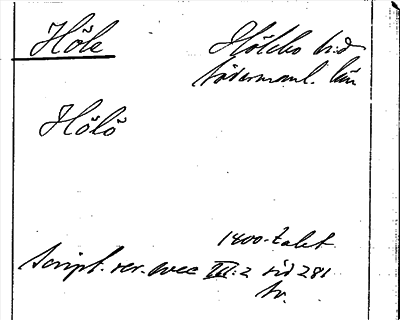 Höle
Hölebo h:d
Södermanl. län
Hölö
1400-talet
Script. rer. svec III:2 sid 281
tr.